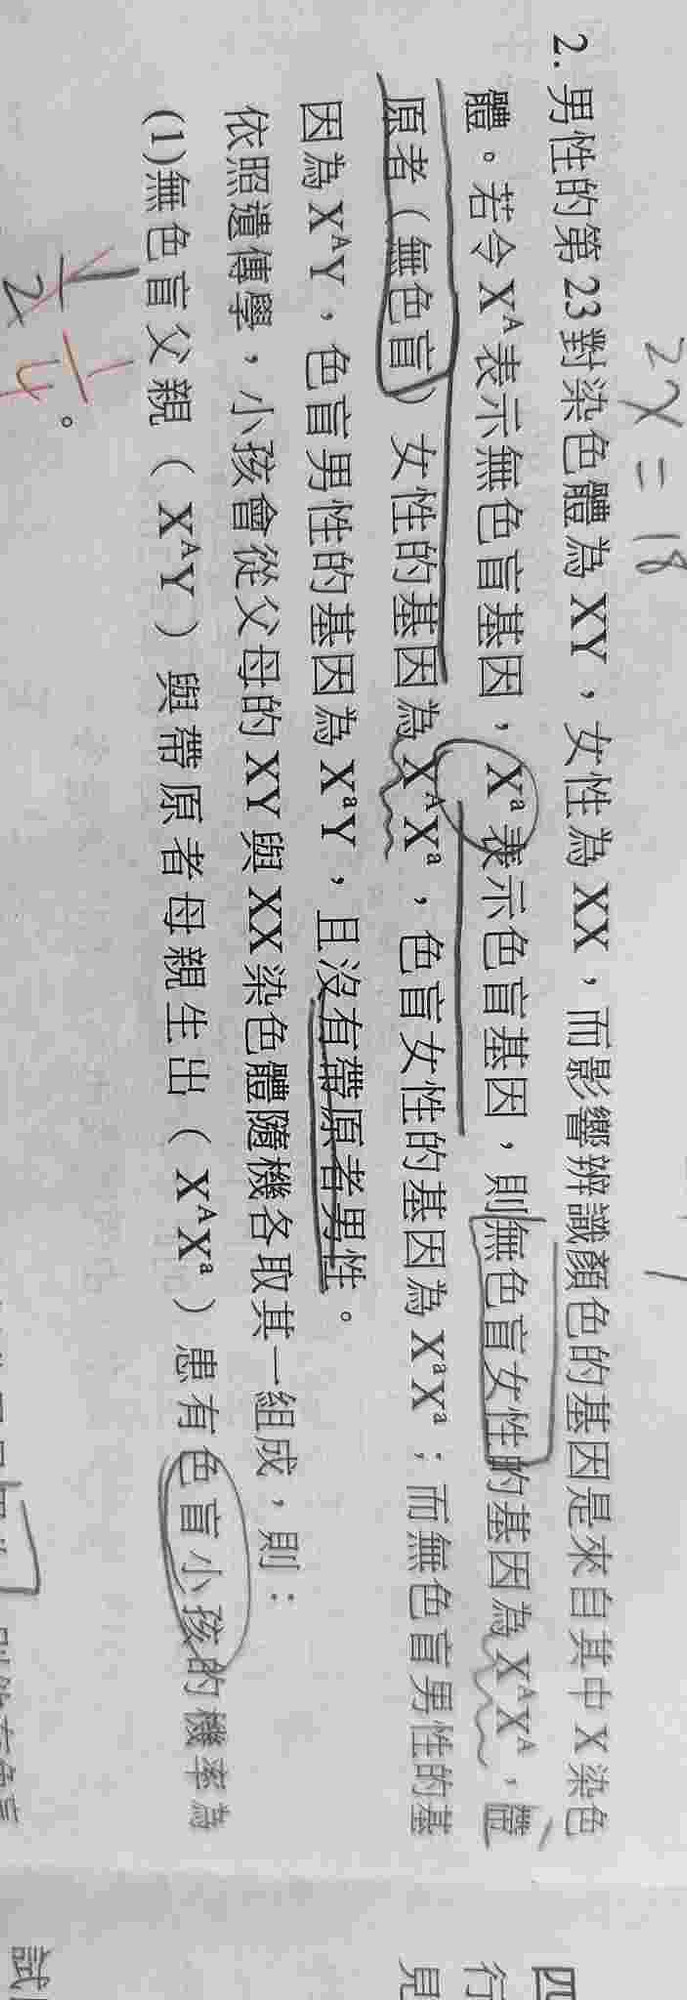 2x = 18
2. 男性的第 23 對染色體為 XY，女性為 XX，而影響辨識顏色的基因是來自其中 X 染色
體。若令 Xᴬ 表示無色盲基因，Xᵃ 表示色盲基因，則無色盲女性的基因為 XᴬXᴬ，體
原者（無色盲）女性的基因為 XᴬXᵃ，色盲女性的基因為 XᵃXᵃ；而無色盲男性的基
因為 XᴬY，色盲男性的基因為 XᵃY，且沒有帶原者男性。
依照遺傳學，小孩會從父母的 XY 與 XX 染色體隨機各取其一組成，則：
(1)無色盲父親（XᴬY）與帶原者母親生出（XᴬXᵃ）患有色盲小孩的機率為
1/2 1/4 。
四
行
見
試